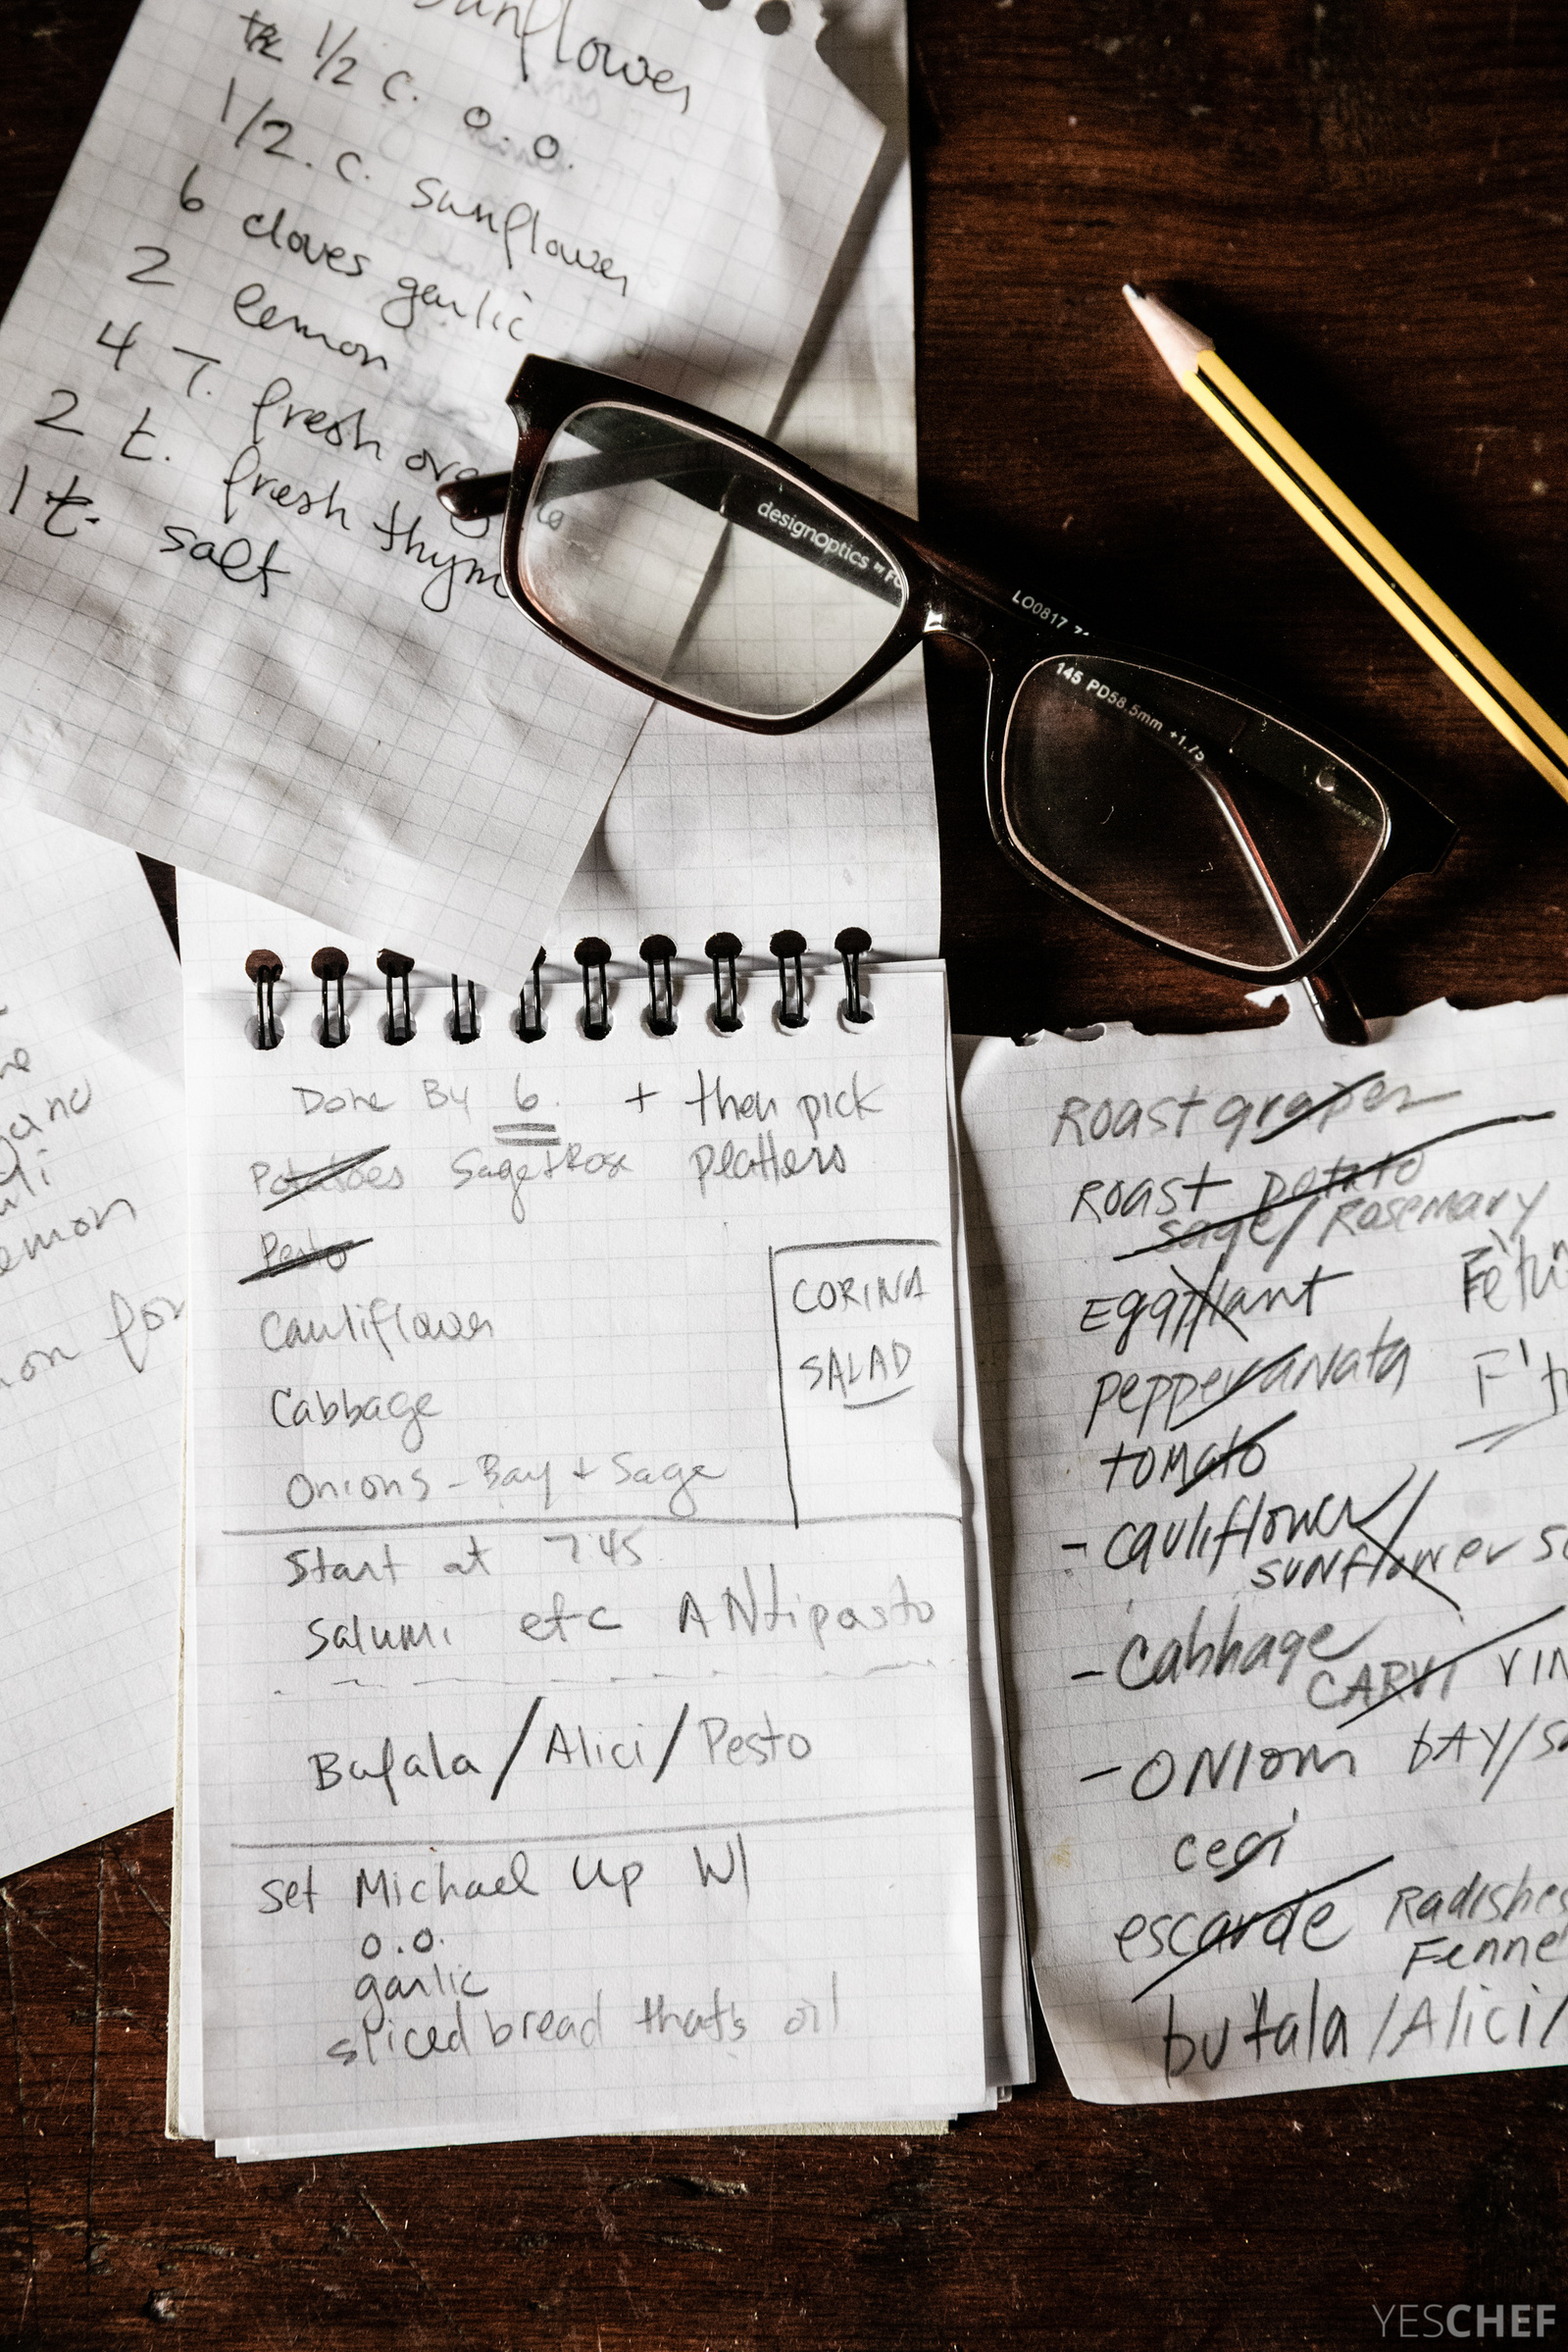 Sunflower
1/2 c. o.o.
1/2. c. sunflower
6 cloves garlic
2 lemon
4 T. fresh
2 t. fresh thym
1 t. salt
designoptics
LO0817
145 PD58.5mm +1.75
emon
on for
Done By 6. + then pick
Potatoes Sage+Rose platters
Pesto
Cauliflower
Cabbage
Onions - Bay + Sage
CORINA
SALAD
Start at 745
Salumi etc ANtipasto
Bufala / Alici / Pesto
set Michael Up W/
o.o.
garlic
sliced bread that's oil
Roast grapes
Roast potato
sage/Rosemary
Eggplant
pepperanata
tomato
- cauliflower
sunflower
- Cabbage
CARVI
- ONION bAY/
ceci
escarole Radishes
Fenne
bufala /Alici/
YESCHEF